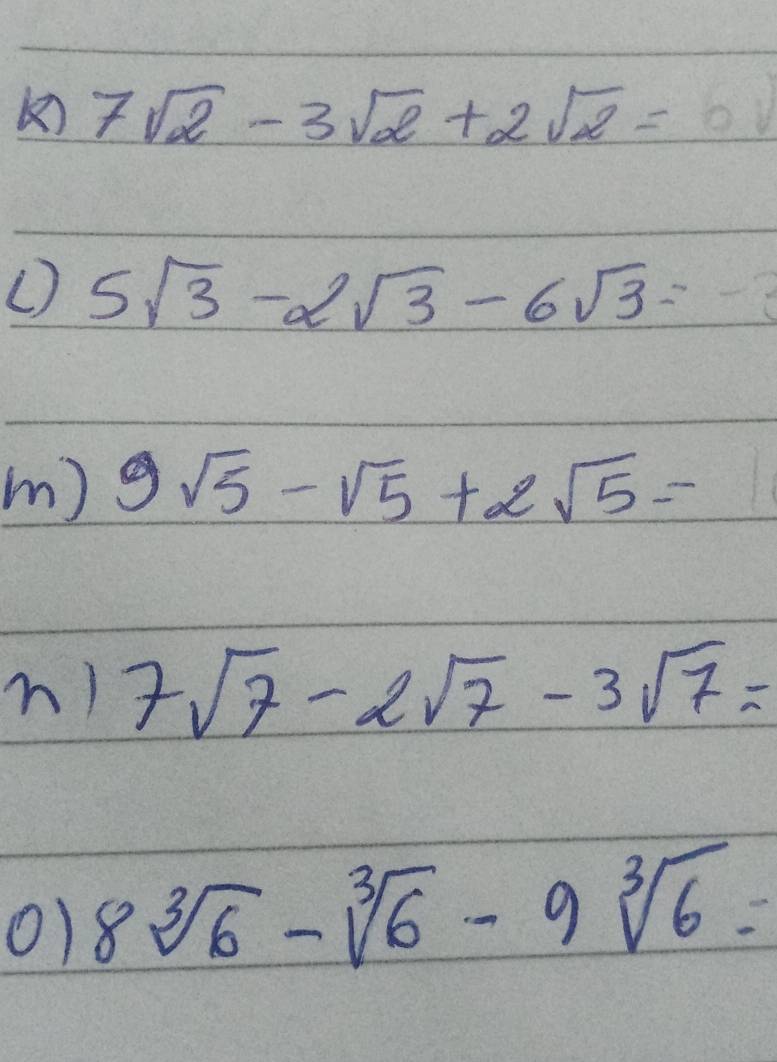 k) 7√2 - 3√2 + 2√2 = 6√
L) 5√3 - 2√3 - 6√3 = -3
m) 9√5 - √5 + 2√5 = 1
n) 7√7 - 2√7 - 3√7 =
o) 8∛6 - ∛6 - 9∛6 =